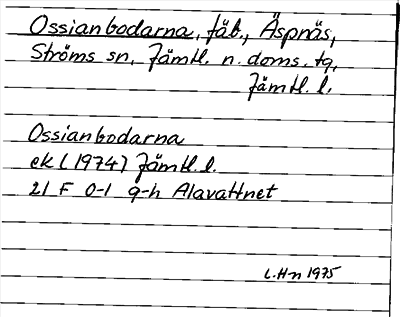 Ossianbodarna, fäb., Äspnäs,
Ströms sn, Jämtl. n. doms. tg,
Jämtl. l.
Ossianbodarna
ek (1974) Jämtl. l.
21 F 0-1 g-h Alavattnet
L.H-n 1975